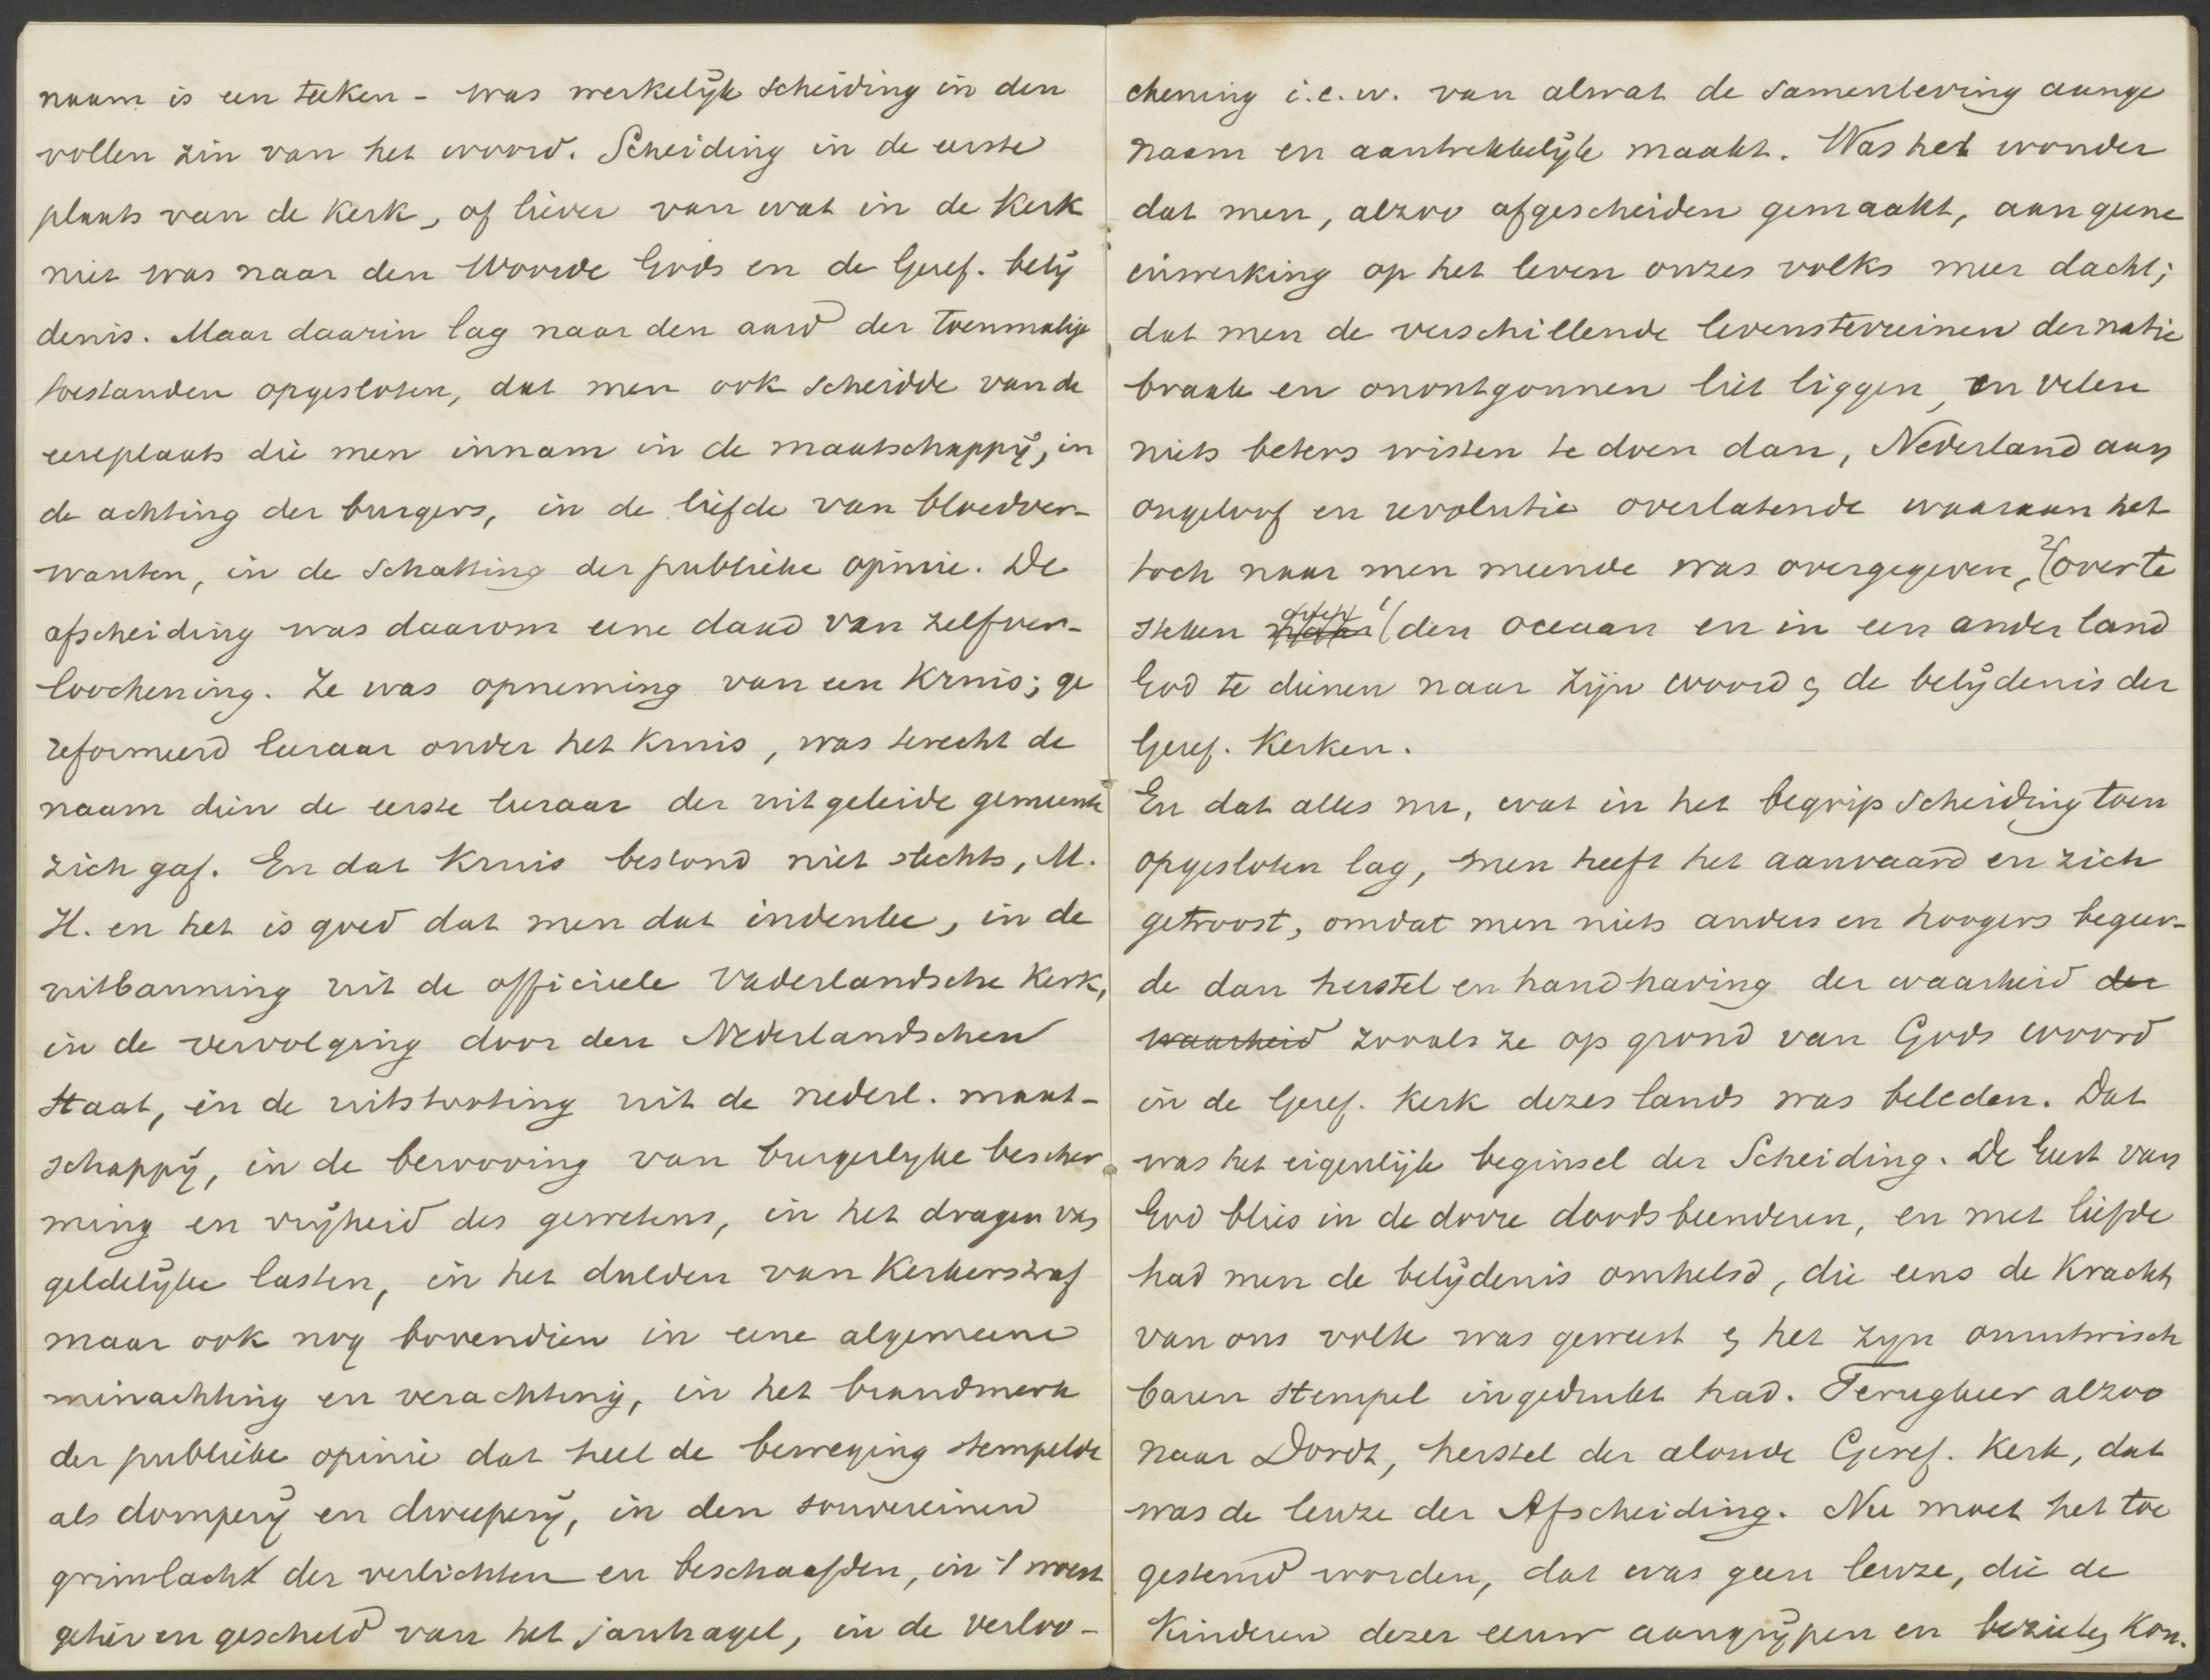 naam is een teeken - was werkelijk scheiding in den
vollen zin van het woord. Scheiding in de eerste
plaats van de Kerk, of liever van wat in de Kerk
niet was naar den Woorde Gods en de Geref. belij
denis. Maar daarin lag naar den aard der toenmalige
toestanden opgesloten, dat men ook scheidde van de
eereplaats die men innam in de maatschappij, in
de achting der burgers, in de liefde van bloedver-
wanten, in de schatting der publieke opinie. De
afscheiding was daarom eene daad van zelfver-
loochening. Ze was opneming van een Kruis; ge
reformeerd leeraar onder het Kruis, was terecht de
naam dien de eerste leeraar der uitgeleide gemeente
zich gaf. En dat Kruis bestond niet slechts, M.
H. en het is goed dat men dat indenke, in de
uitbanning uit de officieele Vaderlandsche Kerk,
in de vervolging door den Nederlandschen
Staat, in de uitstooting uit de nederl. maat-
schappij, in de berooving van burgerlyke bescher
ming en vrijheid des gewetens, in het dragen van
geldelijke lasten, in het dulden van Kerkerstraf
maar ook nog bovendien in eene algemeene
minachting en verachting, in het brandmerk
der publieke opinie dat heel de beweging stempelde
als domperij en dweeperij, in den souvereinen
grimlach der verlichten en beschaafden, in 't woest
getier en gescheld van het janhagel, in de verloo-
chening i.e.w. van alwat de samenleving aange
naam en aantrekkelijk maakt. Was het wonder
dat men, alzoo afgescheiden gemaakt, aan geene
inwerking op het leven onzes volks meer dacht;
dat men de verschillende levensterreinen der natie
braak en onontgonnen liet liggen, en velen
niets beters wisten te doen dan, Nederland aan
ongeloof en revolutie overlatende waaraan het
toch naar men meende was overgegeven, 2( over te
steken 1( den oceaan en in een ander land
God te dienen naar Zijn woord & de belijdenis der
Geref. Kerken.
En dat alles nu, wat in het begrip scheiding toen
opgesloten lag, men heeft het aanvaard en zich
getroost, omdat men niets anders en hoogers begeer-
de dan herstel en handhaving der waarheid der
waarheid zooals ze op grond van Gods woord
in de Geref. Kerk dezes lands was beleden. Dat
was het eigenlijk beginsel der Scheiding. De Geest van
God blies in de dorre doodsbeenderen, en met liefde
had men de belijdenis omhelsd, die eens de Kracht
van ons volk was geweest & het zyn onuitwisch
baren stempel ingedrukt had. Terugkeer alzoo
naar Dordt, herstel der aloude Geref. Kerk, dat
was de leuze der Afscheiding. Nu moet het toe
gestemd worden, dat was geen leuze, die de
Kinderen dezer eeuw aangrijpen en bezielen Kon.